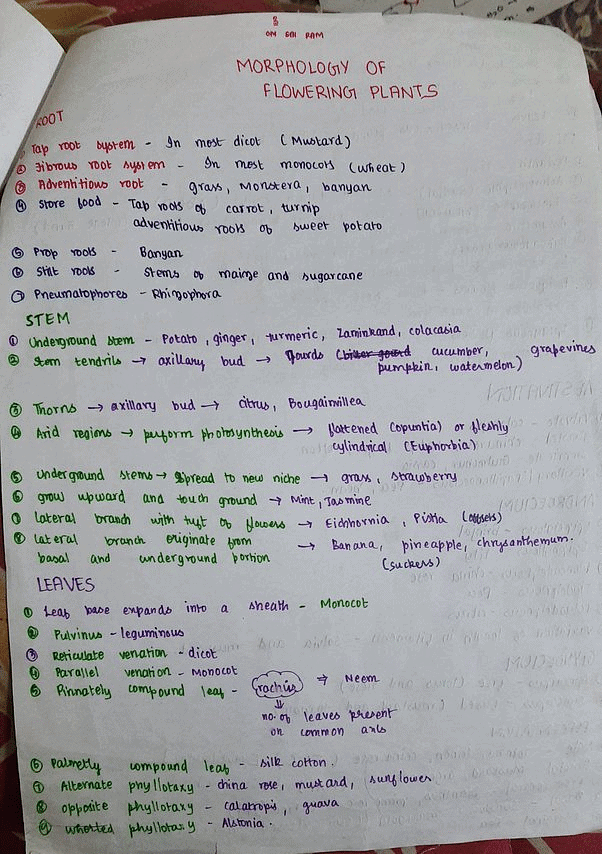 OM SAI RAM
MORPHOLOGY OF
FLOWERING PLANTS
ROOT
Tap root system - In most dicot (Mustard)
② Fibrous root system - In most monocots (wheat)
③ Adventitious root - grass, Monstera, banyan
④ Store food - Tap roots of carrot, turnip
adventitious roots of sweet potato
⑤ Prop roots - Banyan
⑥ Stilt roots - Stems of maize and sugarcane
⑦ Pneumatophores - Rhizophora
STEM
① Underground stem - Potato, ginger, turmeric, Zaminkand, colacasia
② Stem tendrils → axillary bud → Gourds (bitter gourd cucumber, grapevines
pumpkin, watermelon)
③ Thorns → axillary bud → citrus, Bougainvillea
④ Arid regions → perform photosynthesis → flattened (opuntia) or fleshly
cylindrical (Euphorbia)
⑤ Underground stems → Spread to new niche → grass, strawberry
⑥ grow upward and touch ground → Mint, Jasmine
⑦ lateral branch with tuft of flowers → Eichhornia, Pistia (offsets)
⑧ lateral branch originate from → Banana, pineapple, chrysanthemum.
basal and underground portion (suckers)
LEAVES
① Leaf base expands into a sheath - Monocot
② Pulvinus - leguminous
③ Reticulate venation - dicot
④ Parallel venation - Monocot
⑤ Pinnately compound leaf - rachis ⇒ Neem
⇓
no. of leaves present
on common axis
⑥ Palmetly compound leaf - silk cotton.
⑦ Alternate phyllotaxy - china rose, mustard, sunflower
⑧ opposite phyllotaxy - calatropis, guava
⑨ whorled phyllotaxy - Alstonia.